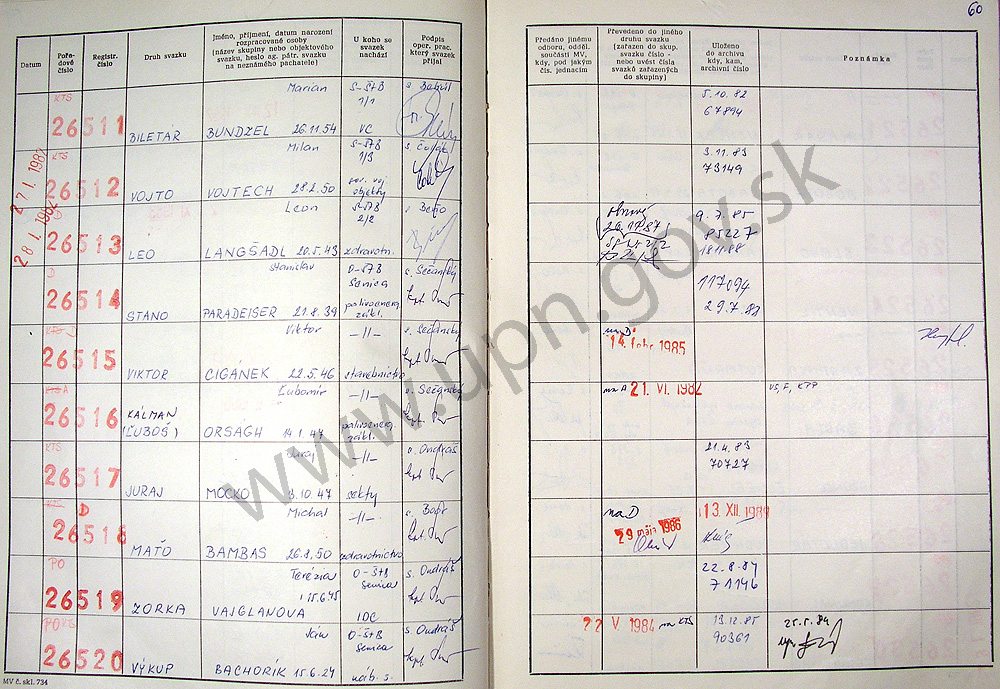 60
Datum
Pořa-
dové
číslo
Registr.
číslo
Druh svazku
Jméno, příjmení, datum narození
rozpracované osoby
(název skupiny nebo objektového
svazku, heslo ag. pátr. svazku
na neznámého pachatele)
U koho se
svazek
nachází
Podpis
oper. prac.
který svazek
přijal
Předáno jinému
odboru, odděl.
součásti MV,
kdy, pod jakým
čís. jednacím
Převedeno do jiného
druhu svazku
(zařazen do skup.
svazku číslo -
nebo uvést čísla
svazků zařazených
do skupiny)
Uloženo
do archivu
kdy, kam,
archivní číslo
Poznámka
KTS
26511
BILETÁR
Marian
BUNDZEL 26.11.54
S-ŠTB
1/1
VC
5.10.82
67894
27 I. 1982
KTS
26512
VOJTO
Milan
VOJTECH 28.2.50
S-ŠTB
1/3
objekty
3.11.83
73149
28 I. 1982
D
26513
LEO
Leon
LANGŠÁDL 20.5.43
S-ŠTB
2/2
zdravotn.
9.7.85
85227
D
26514
STANO
Stanislav
PARADEISER 21.8.39
O-ŠTB
Senica
s. Sečanský
117094
29.7.89
26515
VIKTOR
Viktor
CIGÁNEK 22.5.46
-11-
stavebníctvo
s. Sečanský
na D
14. febr. 1985
A
26516
KÁLMAN
(ĽUBOŠ)
Ľubomír
ORSAGH 14.1.47
-11-
s. Sečanský
na A 21. VI. 1982
VS, F, KPP
KTS
26517
JURAJ
Juraj
MOCKO 3.10.47
-11-
sekty
s. Ondráš
21.4.83
70727
D
26518
MAŤO
Michal
BAMBAS 26.8.50
-11-
zdravotníctvo
na D
29 mája 1986
13. XII. 1989
PO
26519
ZORKA
Terézia
15.6.45
VAJGLANOVA
O-ŠTB
Senica
IOC
s. Ondráš
22.8.84
71146
PO KTS
26520
VÝKUP
Ján
BACHORÍK 15.6.24
O-ŠTB
Senica
náb. s.
s. Ondráš
22 V. 1984 na KTS
13.12.85
90361
25.5.84
MV č. skl. 734
www.upn.gov.sk